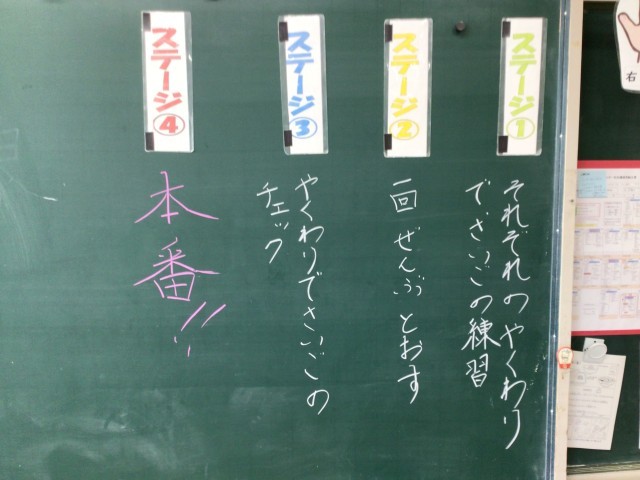 ステージ①
それぞれのやくわり
でさいごの練習
ステージ②
一回ぜんぶとおす
ステージ③
やくわりでさいごの
チェック
ステージ④
本番!!
右